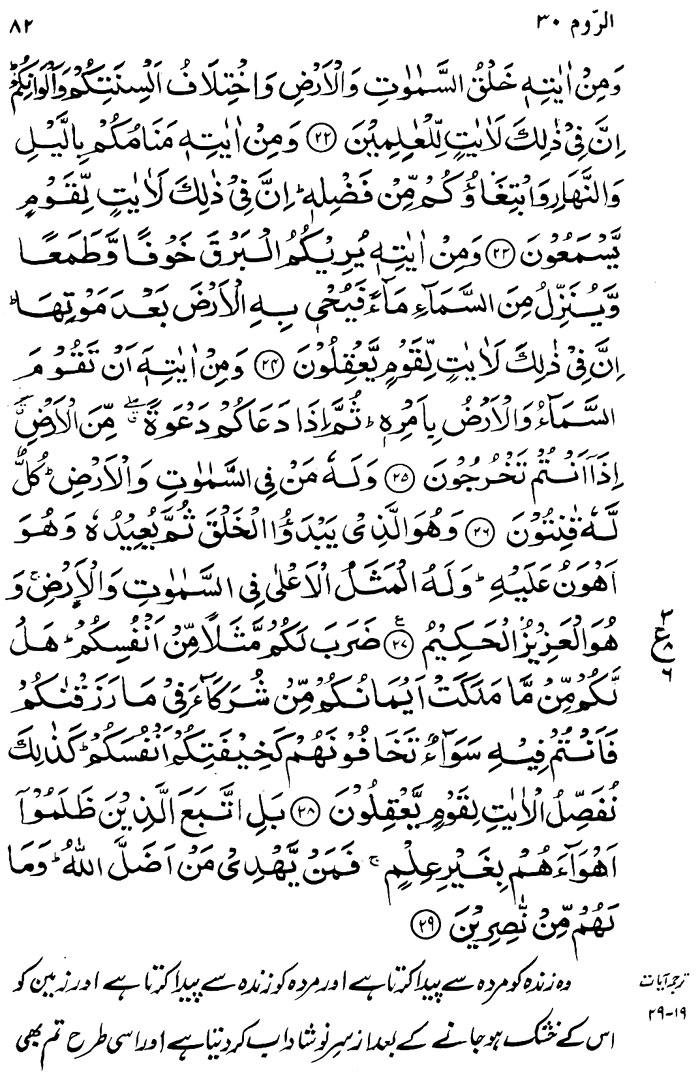 الرّوم ۳۰
۸۲
وَمِنْ اٰيٰتِهٖ خَلْقُ السَّمٰوٰتِ وَالْاَرْضِ وَاخْتِلَافُ اَلْسِنَتِكُمْ وَاَلْوَانِكُمْ ؕ
اِنَّ فِىْ ذٰلِكَ لَاٰيٰتٍ لِّلْعٰلِمِيْنَ ﴿۲۲﴾ وَمِنْ اٰيٰتِهٖ مَنَامُكُمْ بِالَّيْلِ
وَالنَّهَارِ وَابْتِغَآؤُكُمْ مِّنْ فَضْلِهٖ ؕ اِنَّ فِىْ ذٰلِكَ لَاٰيٰتٍ لِّقَوْمٍ
يَّسْمَعُوْنَ ﴿۲۳﴾ وَمِنْ اٰيٰتِهٖ يُرِيْكُمُ الْبَرْقَ خَوْفًا وَّطَمَعًا
وَّيُنَزِّلُ مِنَ السَّمَآءِ مَآءً فَيُحْىٖ بِهِ الْاَرْضَ بَعْدَ مَوْتِهَا ؕ
اِنَّ فِىْ ذٰلِكَ لَاٰيٰتٍ لِّقَوْمٍ يَّعْقِلُوْنَ ﴿۲۴﴾ وَمِنْ اٰيٰتِهٖۤ اَنْ تَقُوْمَ
السَّمَآءُ وَالْاَرْضُ بِاَمْرِهٖ ؕ ثُمَّ اِذَا دَعَاكُمْ دَعْوَةً ۖۗ مِّنَ الْاَرْضِ ۖۗ
اِذَاۤ اَنْتُمْ تَخْرُجُوْنَ ﴿۲۵﴾ وَلَهٗ مَنْ فِى السَّمٰوٰتِ وَالْاَرْضِ ؕ كُلٌّ
لَّهٗ قٰنِتُوْنَ ﴿۲۶﴾ وَهُوَ الَّذِىْ يَبْدَؤُا الْخَلْقَ ثُمَّ يُعِيْدُهٗ وَهُوَ
اَهْوَنُ عَلَيْهِ ؕ وَلَهُ الْمَثَلُ الْاَعْلٰى فِى السَّمٰوٰتِ وَالْاَرْضِ ۚ وَ
هُوَ الْعَزِيْزُ الْحَكِيْمُ ﴿۲۷﴾ ضَرَبَ لَكُمْ مَّثَلًا مِّنْ اَنْفُسِكُمْ ؕ هَلْ
لَّكُمْ مِّنْ مَّا مَلَكَتْ اَيْمَانُكُمْ مِّنْ شُرَكَآءَ فِىْ مَا رَزَقْنٰكُمْ
فَاَنْتُمْ فِيْهِ سَوَآءٌ تَخَافُوْنَهُمْ كَخِيْفَتِكُمْ اَنْفُسَكُمْ ؕ كَذٰلِكَ
نُفَصِّلُ الْاٰيٰتِ لِقَوْمٍ يَّعْقِلُوْنَ ﴿۲۸﴾ بَلِ اتَّبَعَ الَّذِيْنَ ظَلَمُوْۤا
اَهْوَآءَهُمْ بِغَيْرِ عِلْمٍ ۚ فَمَنْ يَّهْدِىْ مَنْ اَضَلَّ اللّٰهُ ؕ وَمَا
لَهُمْ مِّنْ نّٰصِرِيْنَ ﴿۲۹﴾
۳
ع
۸
۶
ترجمہ آیات
۲۹-۱۹
وہ زندہ کو مردہ سے پیدا کرتا ہے اور مردہ کو زندہ سے پیدا کرتا ہے اور زمین کو
اس کے خشک ہوجانے کے بعد از سرِ نو شاداب کر دیتا ہے اور اسی طرح تم بھی